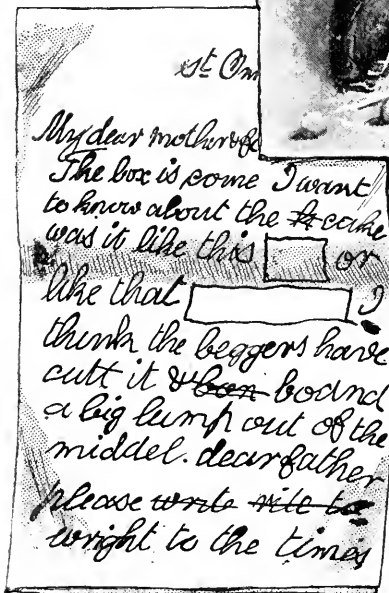 St Om
My dear mother & fa
The box is come I want
to know about the k cake
was it like this or
like that I
think the beggers have
cutt it & bon boand
a big lump out of the
middel. dear father
please write rite to
wright to the times